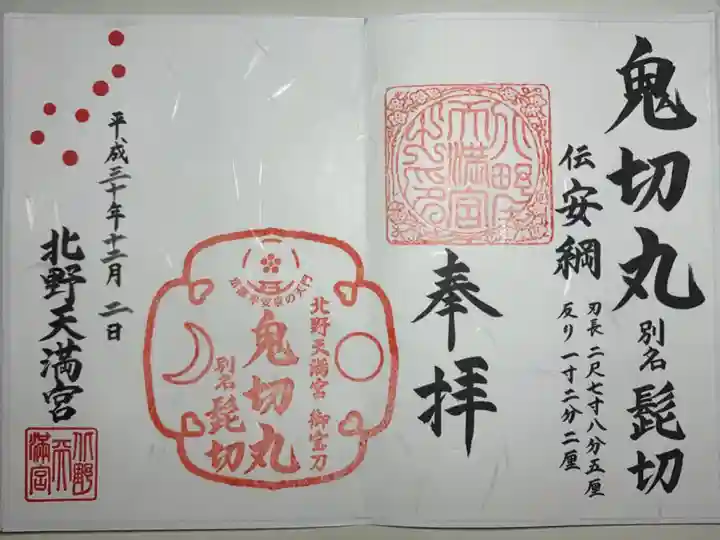 鬼切丸
別名 髭切
伝 安綱
刃長 二尺七寸八分五厘
反り 一寸二分二厘
奉拝
北野天満宮
北野天満宮 御宝刀
鬼切丸
別名 髭切
平安京の天門
平成三十年十二月二日
北野天満宮
北野天満宮